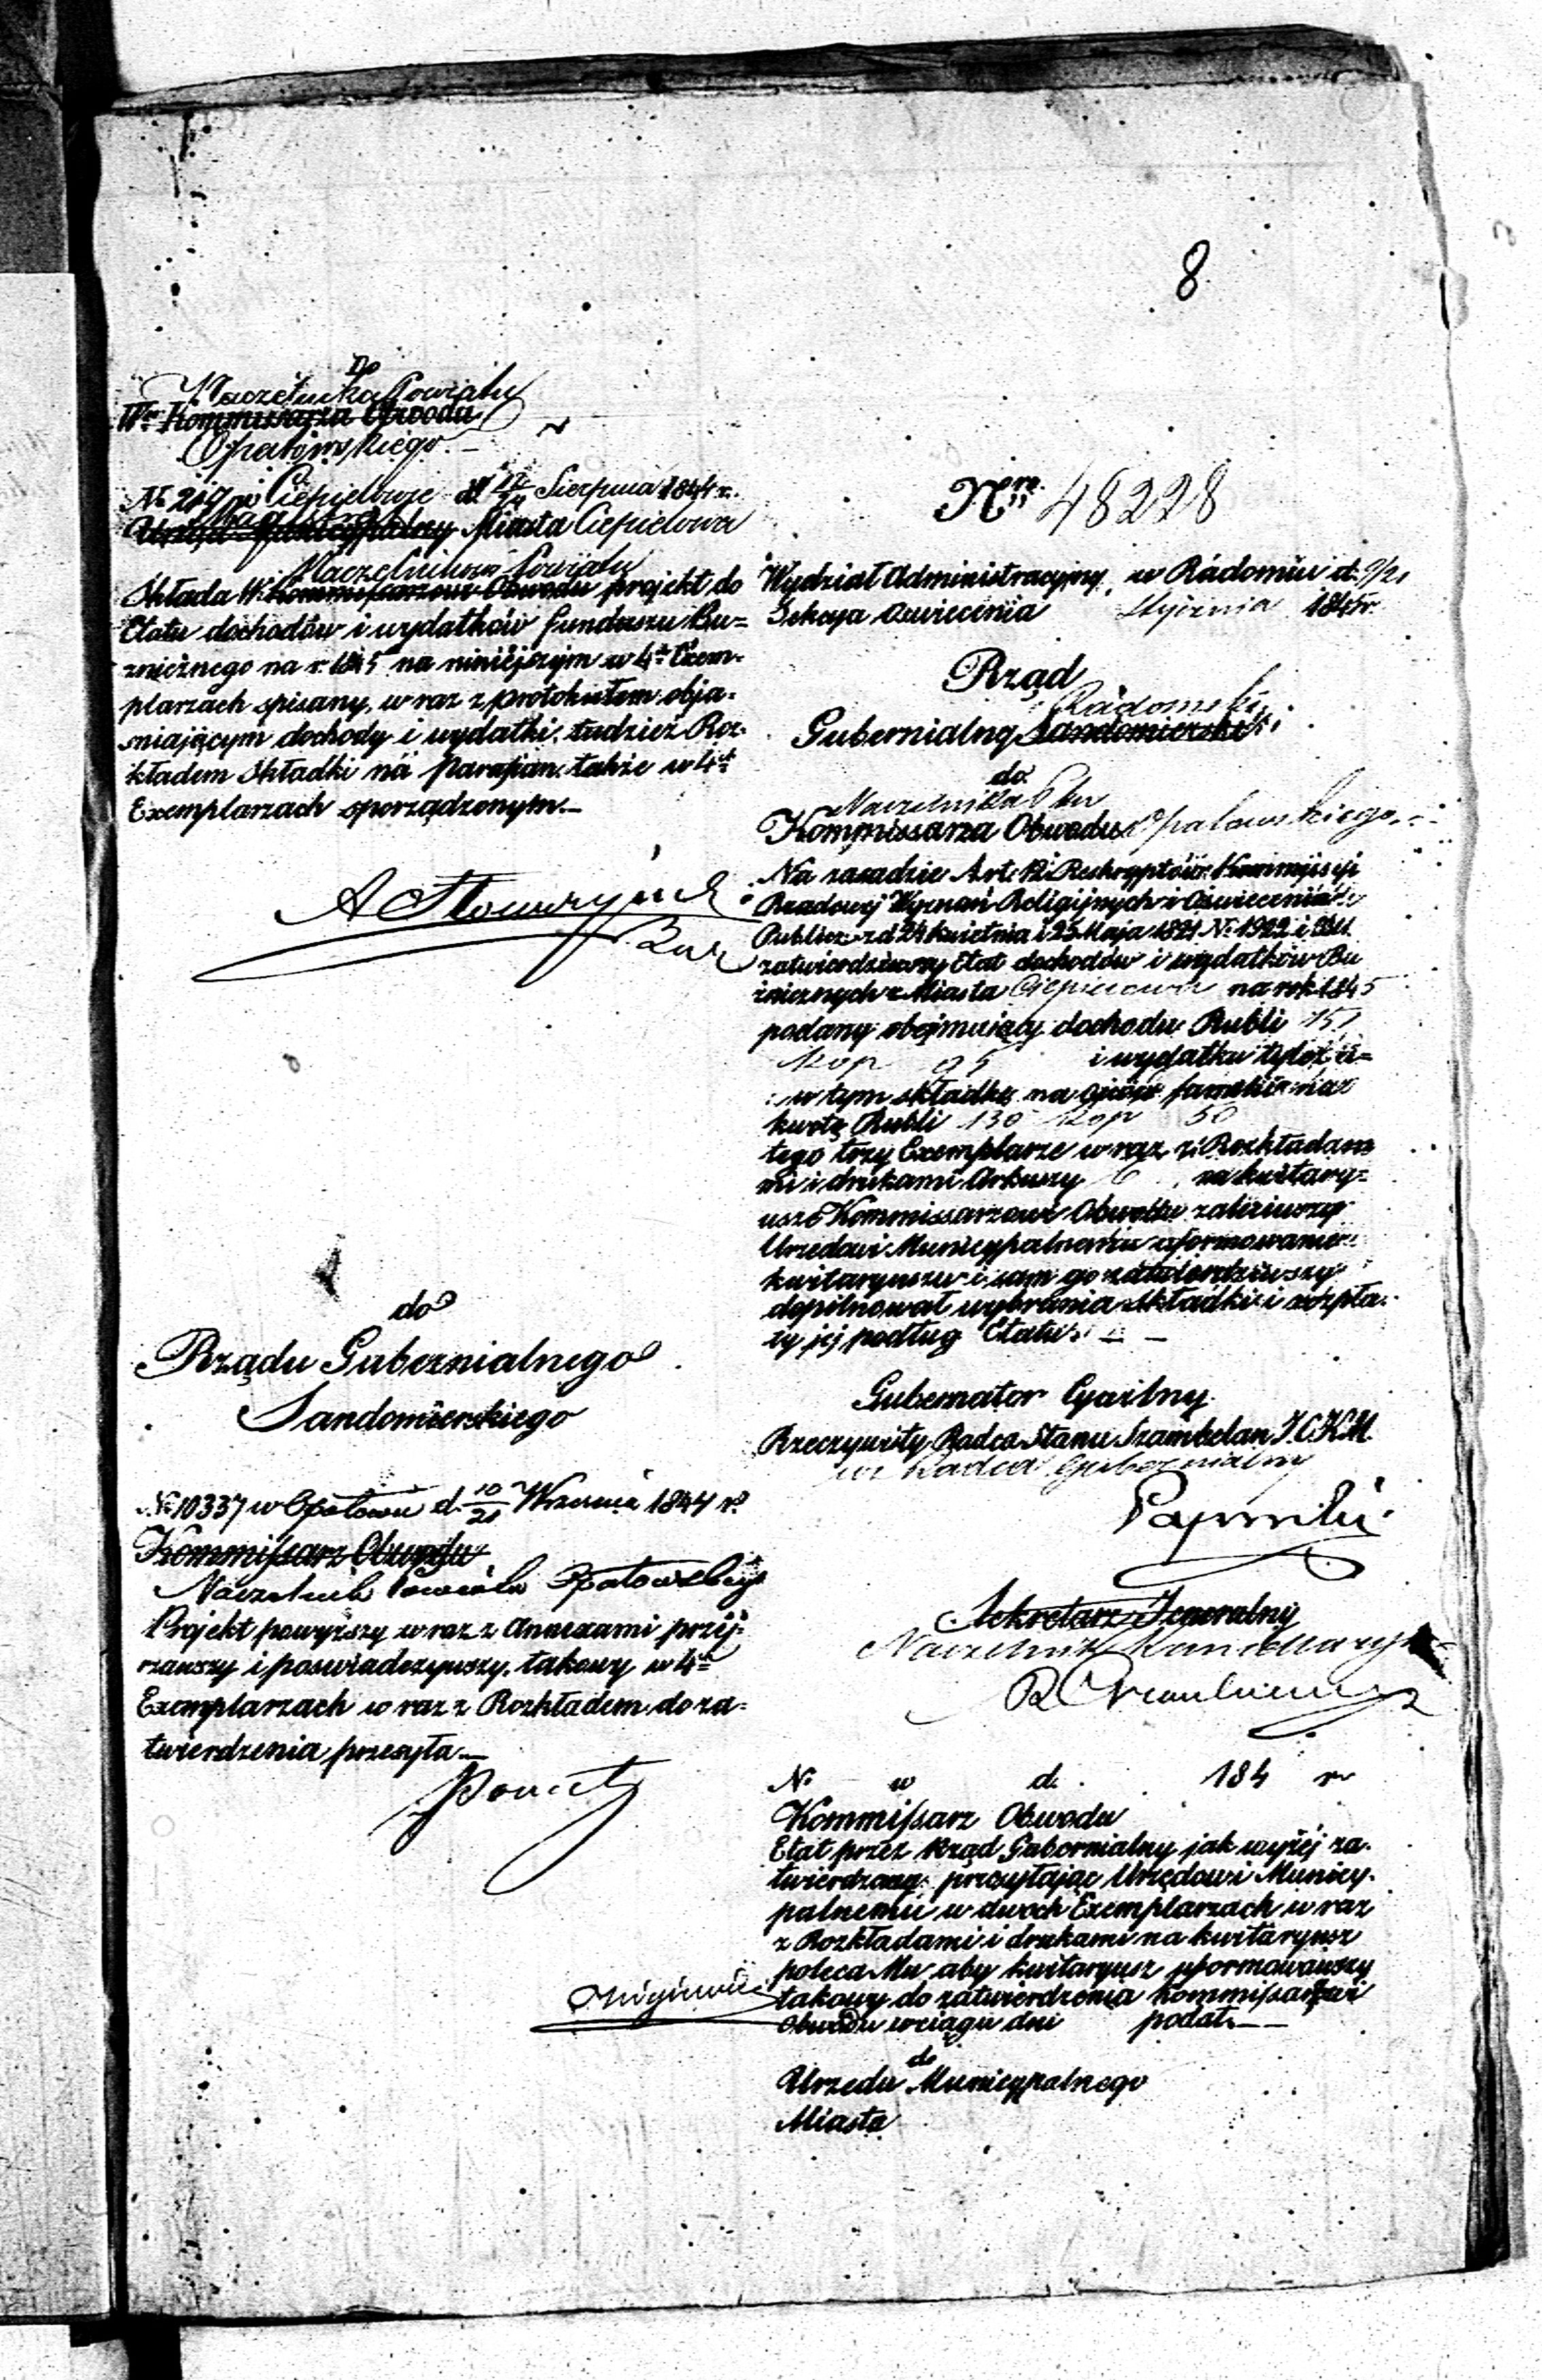 8
Do
Naczelnika Powiatu
Wo Kommissarza Obwodu
Opatowskiego.
No 217 w Ciepielowie d. Sierpnia 1844 r.
Urząd Municypalny Miasta Ciepielowa
Naczelnikowi Powiatu
Składa W. Kommissarzowi Obwodu projekt do
Etatu dochodów i wydatków funduszu Bu=
znicznego na r. 1845 na niniéjszym w 4ch Exem-
plarzach spisany, w raz z protokułem obja-
sniającym dochody i wydatki, tudzież Roz-
kładem Składki na Parafian. także w 4ch
Exemplarzach sporządzonym.—
do
Rządu Gubernialnego
Sandomierskiego
No 10337 w Opatowie d. 10/21 Września 1844 r.
Kommissarz Obwodu
Naczelnik Powiatu Opatowskiego
Projekt powyższy w raz z Annexami przéj-
rzawszy i poswiadczywszy, takowy w 4ch
Exemplarzach w raz z Rozkładem do za-
twierdzenia przesyła.—
Nro 48228
Wydział Administracyjny, w Radomiu d. 9/21
Sekcya Oswiecenia Stycznia 1845 r.
Rząd
Radomski
Gubernialny Sandomierski
do
Naczelnika Ptu
Kommissarza Obwodu Opatowskiego.
Na zasadzie Art. Reskryptów Kommissyi
Rządowej Wyznań Religijnych i Oswiecenia
Public. z d. 24 Kwietnia i 25 Maja 1821 No 1922 i
zatwierdziwszy Etat dochodów i wydatków Bu
żnicznych z Miasta Ciepielowa na rok 1845
podany obejmujący dochodu Rubli 151
kop 95 i wydatku tyleż a=
w tym składkę na ojców familii na
kwotę Rubli 130 kop 50
tego trzy Exemplarze w raz z Rozkładam
mi i drukami Arkuszy 6 na kwitary=
usze Kommissarzowi Obwodu
Urzędowi Municypalnemu uformowanie
kwitaryuszu i sam go zatwierdziwszy
dopilnował wybrania składki i
ty jej podług Etatu. — —
Gubernator Cywilny
Rzeczywisty Radca Stanu Szambelan J.C.K.M.
wz Radca Gubernialny
Sekretarz Jeneralny
Naczelnik Kancellaryi
No w d. 184 r
Kommissarz Obwodu
Etat przez Rząd Gubernialny jak wyżéj za-
twierdzony przesyłając Urzędowi Municy-
palnemu w dwoch Exemplarzach w raz
z Rozkładami i drukami na kwitaryusz
poleca Mu aby kwitaryusz uformowawszy
takowy do zatwierdzenia Kommissarzowi
Obwodu w ciągu dni podał.—
do
Urzędu Municypalnego
Miasta